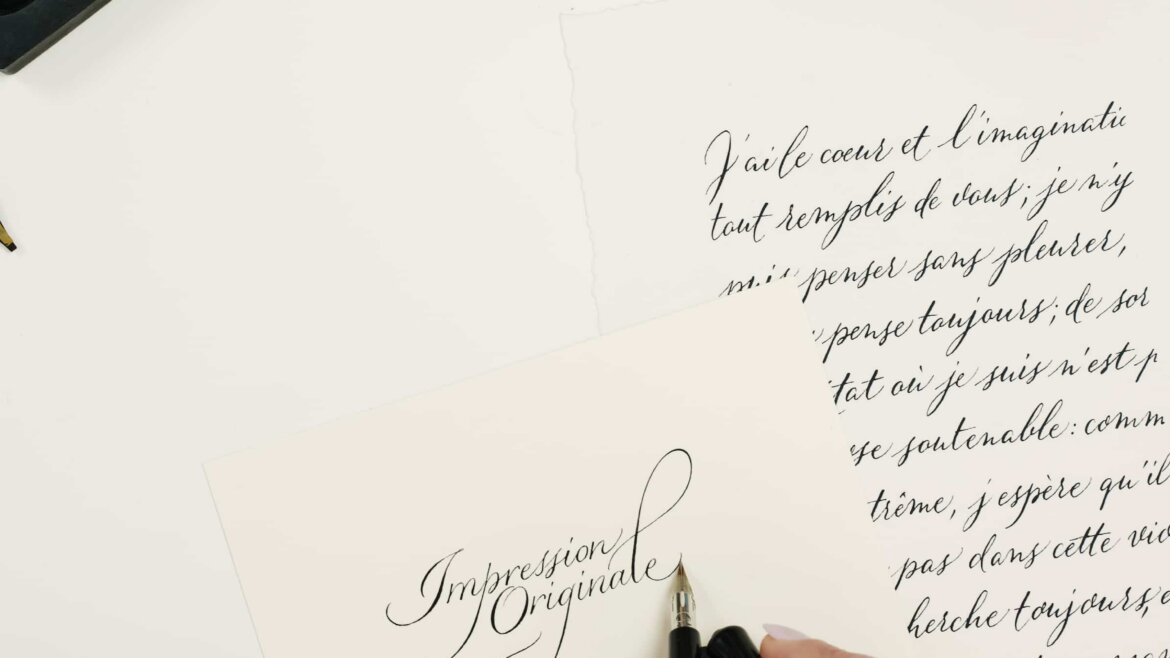 J'ai le coeur et l'imaginati
tout remplis de vous; je n'y
puis penser sans pleurer,
pense toujours; de sor
tat où je suis n'est p
se soutenable: comm
trême, j'espère qu'il
pas dans cette vio
herche toujours,
Impression
Originale